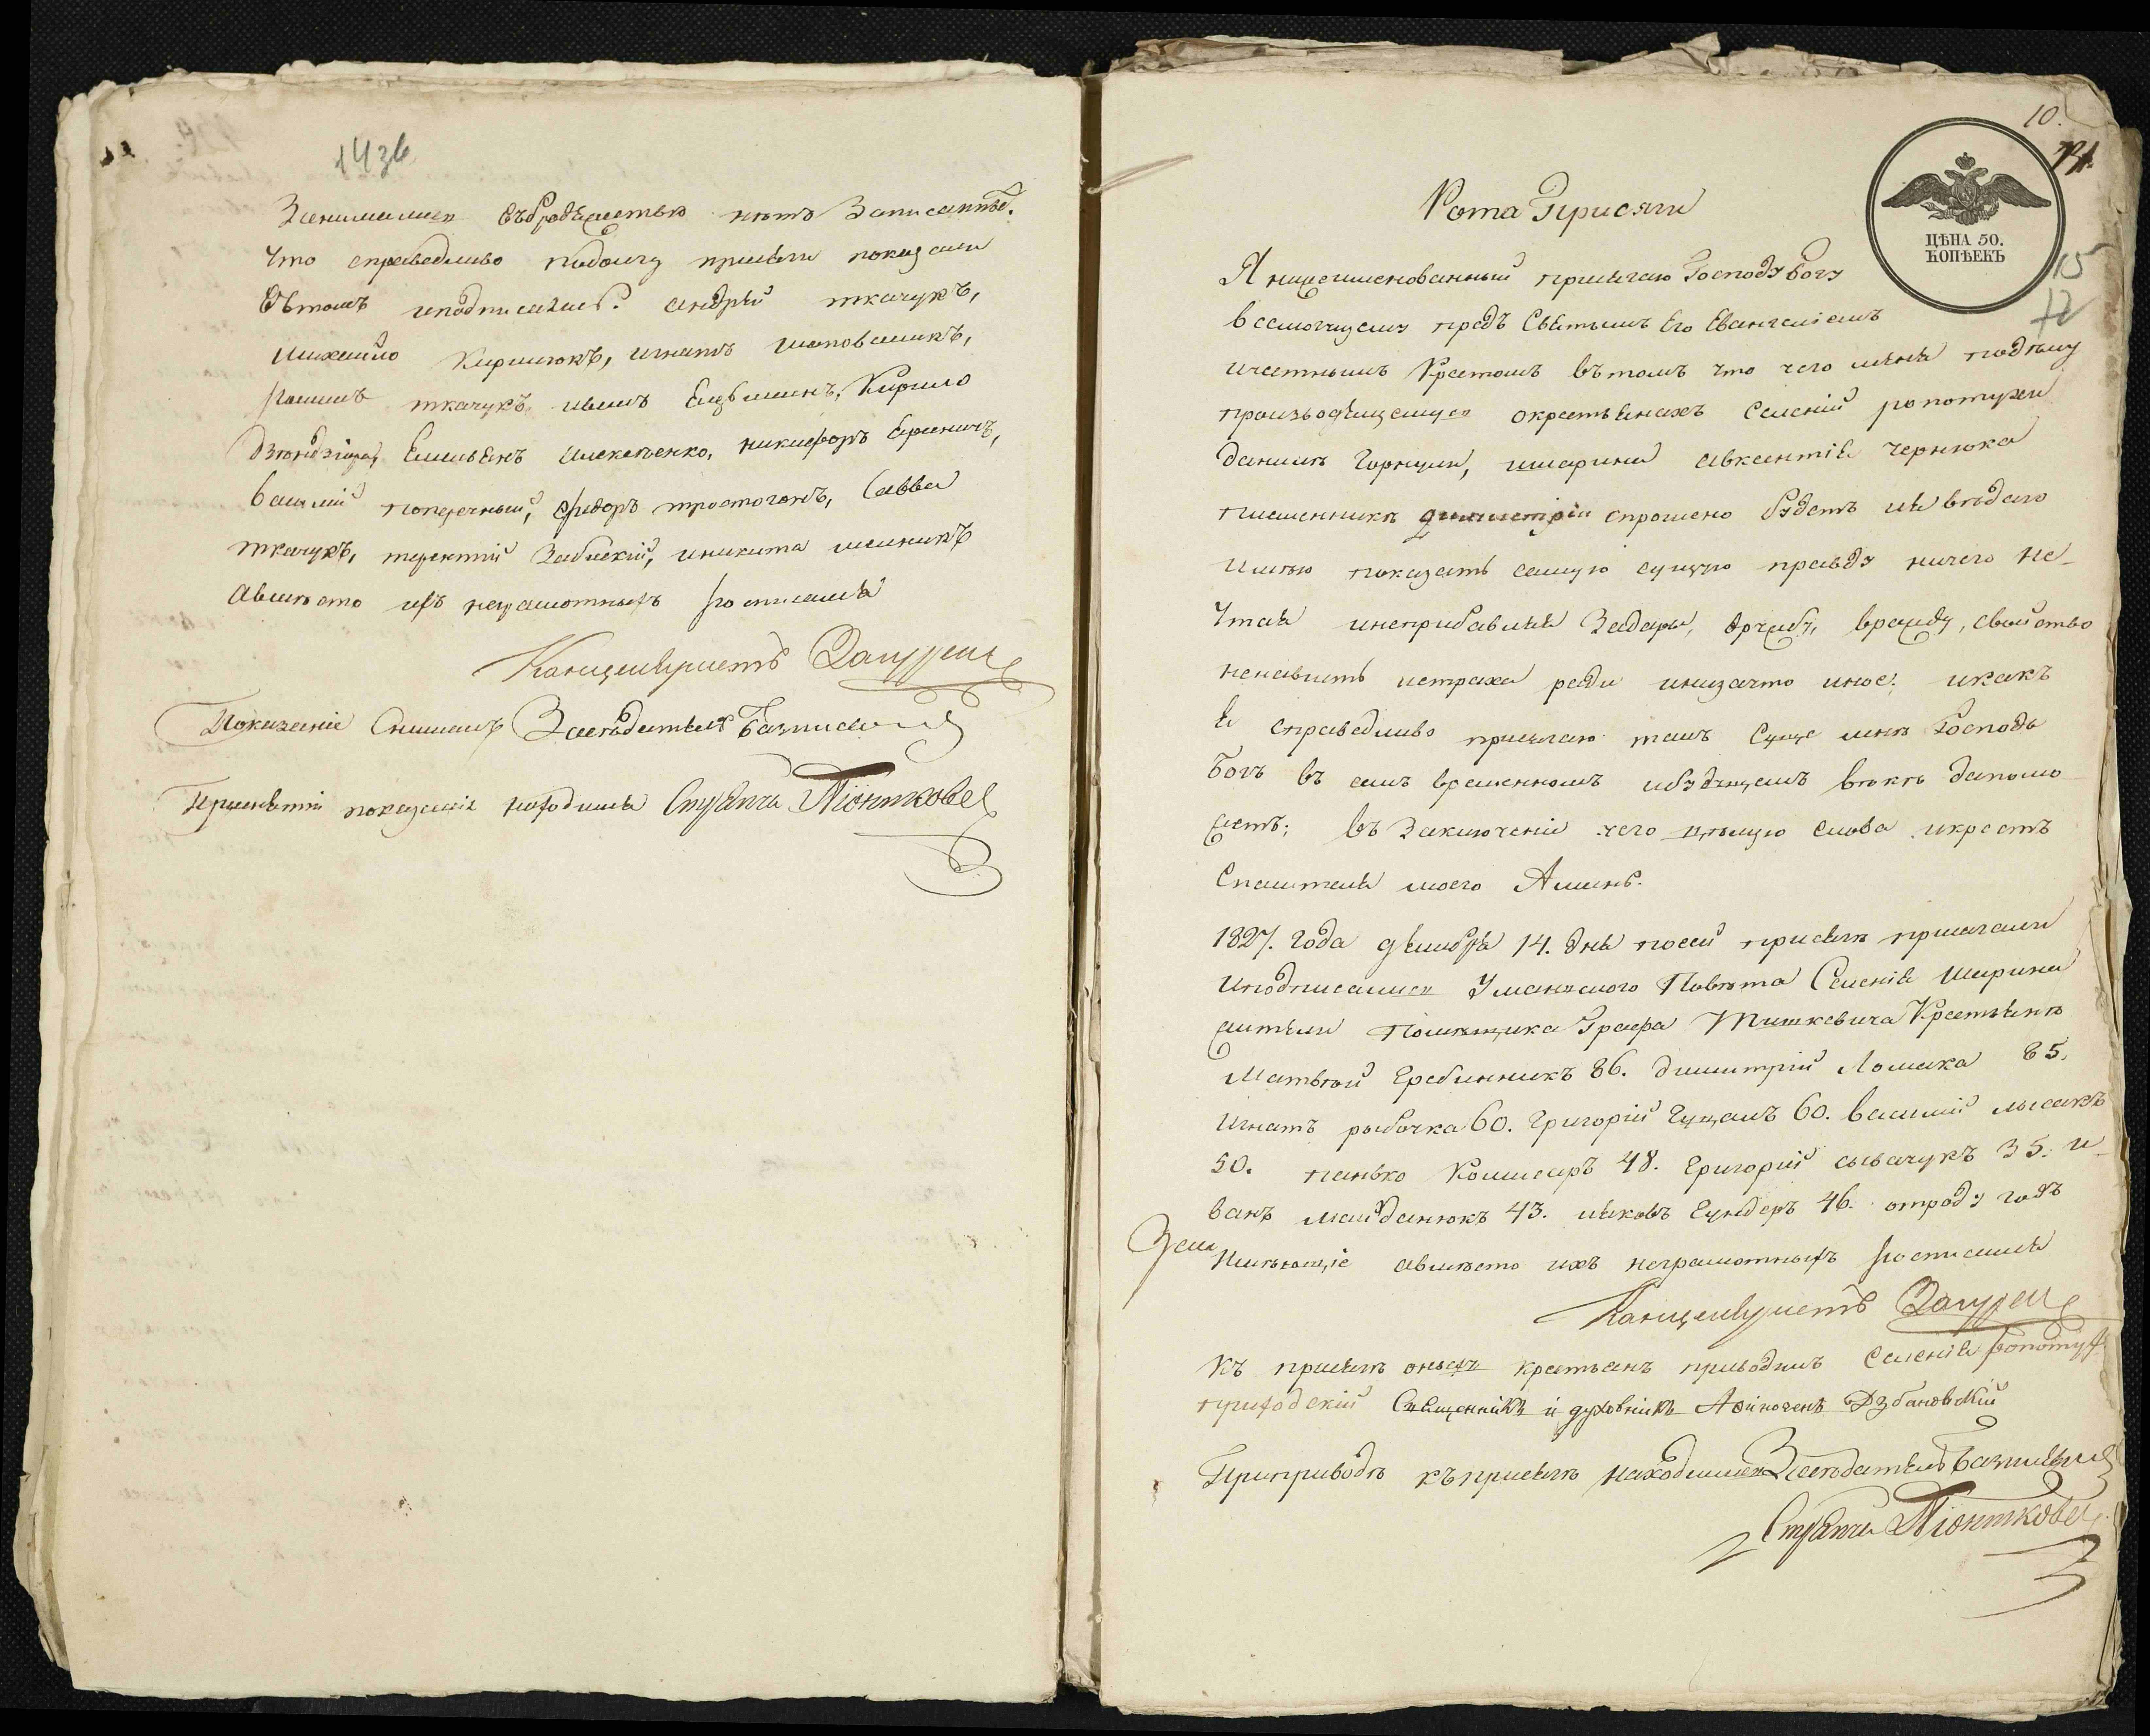 143б
Занималися бродяжествомъ нетъ Записанные.
Что справедливо подолгу присяги показали
Втомъ иподписались: андрей ткачукъ,
михайло Кирилюкъ, игнатъ шаповаликъ,
ткачукъ, иванъ Кирило
Емельянъ Алексеенко, никифоръ
василий поперечный, федоръ простоганъ, Савва
ткачукъ, терентий Забиский, иникита мельникъ
авместо ихъ неграмотныхъ росписался
Канцеляристъ
Показание Снималъ Заседатель
Принятии показания находился Стряпчий Піонтковс
10.
ЦѢНА 50.
КОПѢЕКЪ
15
Рота Присяги
Я нижеименованный присягаю Господу богу
всемогущему предъ Святымъ Его Евангелиемъ
ичестнымъ Крестомъ втомъ что чего меня поделу
производящемуся окрестьянахъ Селений ропотухи
даниле Горкуши, ишарина авксентия Чернюка
племеннике димитрии спрошено будетъ ия ведаю
имею показать самую сущую правду ничего не-
Утая инеприбавляя Задары, дружбу, вражду, свойство
ненависть истраха ради инизачто иное; икакъ
я справедливо присягаю такъ Суще мне Господь
Богъ въ семъ временномъ ибудущемъ веке да помо
жетъ; въ Заключении чего целую слова икрестъ
Спасителя моего Аминь.
1827. года декабря 14. дня посей присяге присягали
иподписалися Уманского Повета Селения Шарина
жители Помещика Графа Тишкевича Крестьяне
Матвей Гребинникъ 86. димитрий Ломака 85.
игнатъ рыбачка 60. Григорий Гуцалъ 60. василий лысакъ
50. панько Комисаръ 48. Григорий сывачукъ 35. и-
ванъ майданюкъ 43. яковъ Гундеръ 46. отроду годъ
имеющие авместо ихъ неграмотныхъ росписался
Канцеляристъ
къ присяге оныхъ крестьянъ приводилъ Селения ропотух
приходский Священникъ и духовникъ Афиногенъ Дзбановский
Приприводе къприсяге находился Заседатель
Стряпчий Піонтковс